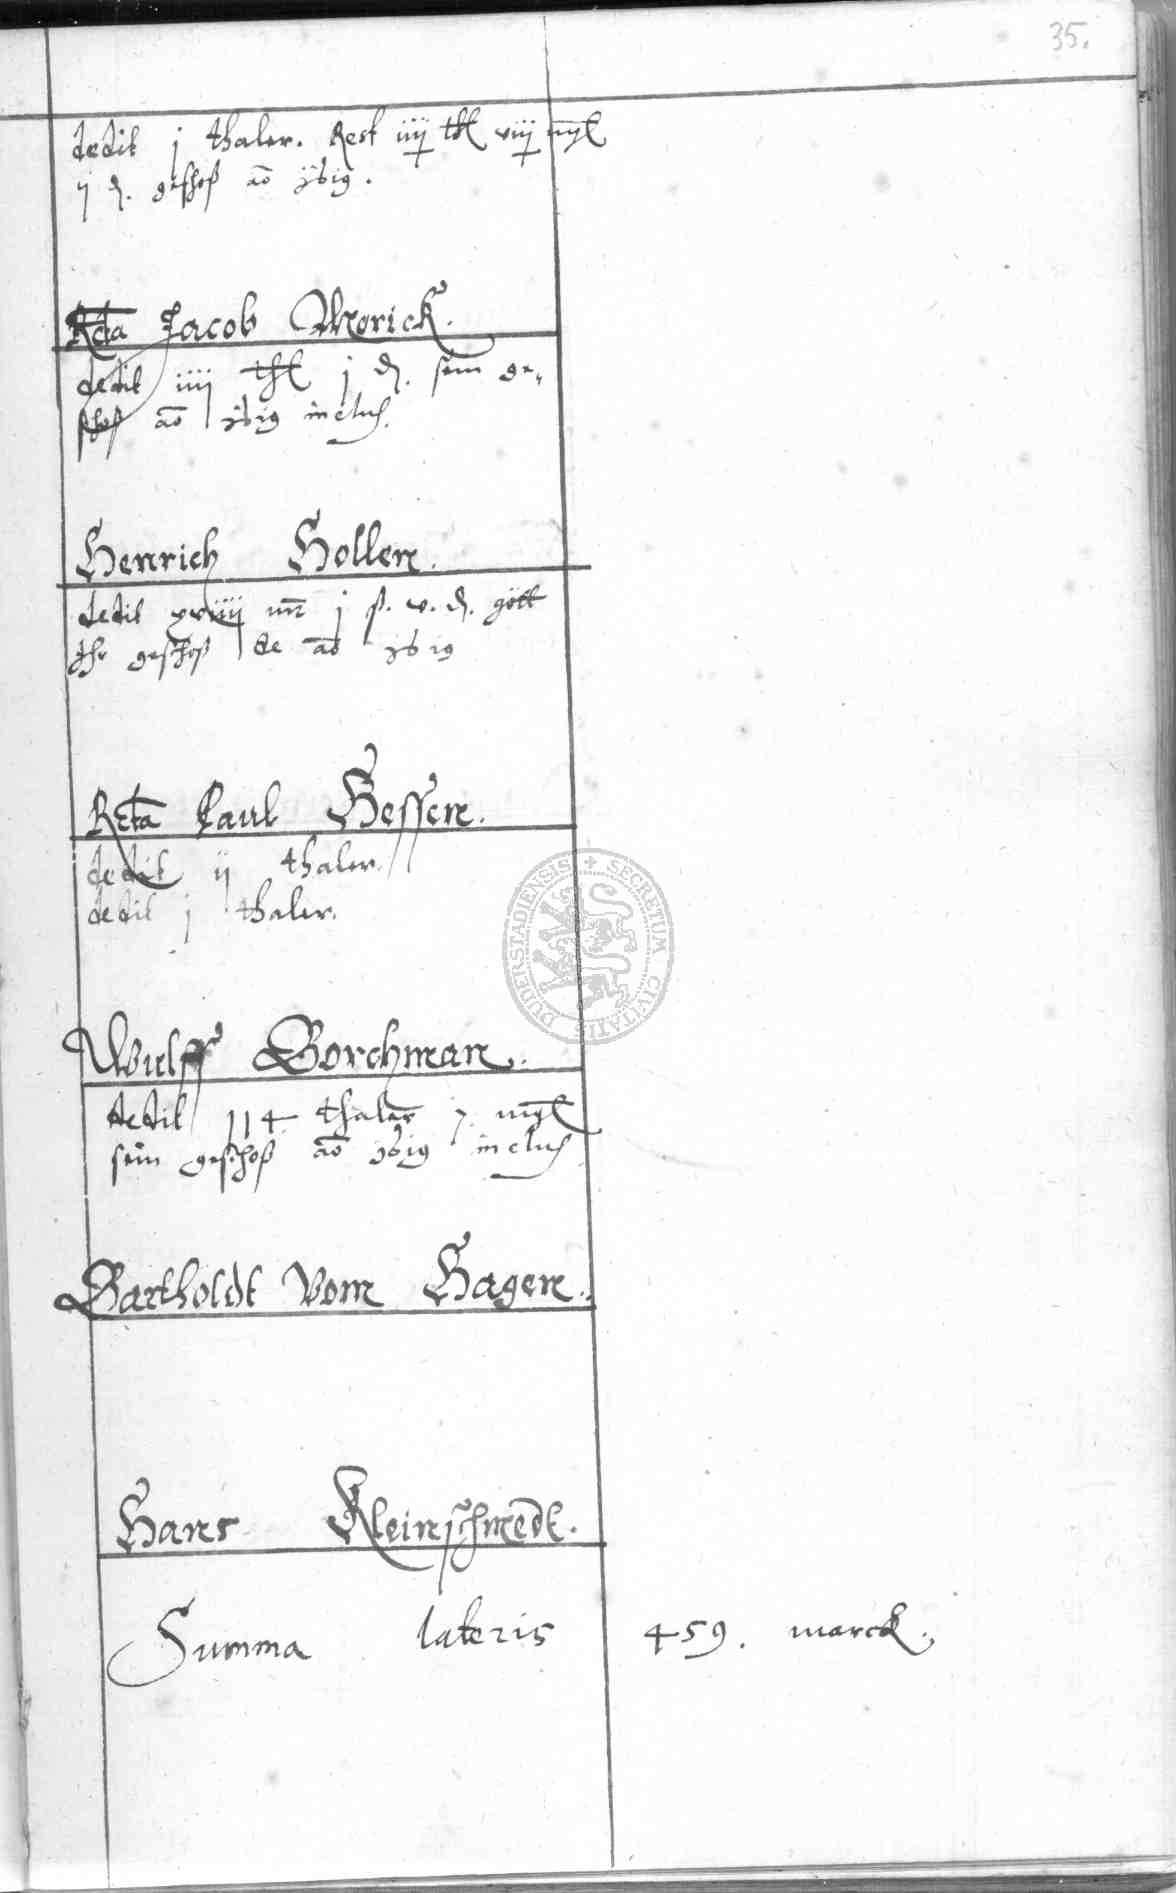 35.
dedit j thaler. Rest iiij thl viij mgl
7 d. geschoß ao
Rcta Jacob Morick.
dedit iiij thl j d. sein ge-
schoß ao inclus.
Henrich Hollen.
dedit xviiij mr j ß. v. d.
Ihr geschoß de ao
Rcta Paul Hessen.
dedit ij thaler.
dedit j thaler.
Wulff Borchman.
dedit 114 thaler 7. mgl
sein geschoß ao inclus
Bartholdt Vom Hagen.
Hans Kleinschmedt.
Summa lateris 459. marck.
DUDERSTADIENSIS + SECRETUM CIVITATIS